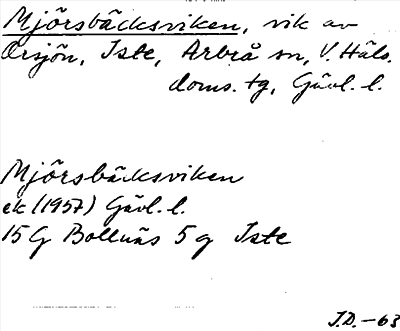 Mjörsbäcksviken, vik av
Orsjön, Iste, Arbrå sn, V. Häls.
doms. tg, Gävl. l.
Mjörsbäcksviken
ek (1957) Gävl. l.
15G Bollnäs 5g Iste
J.D. -63